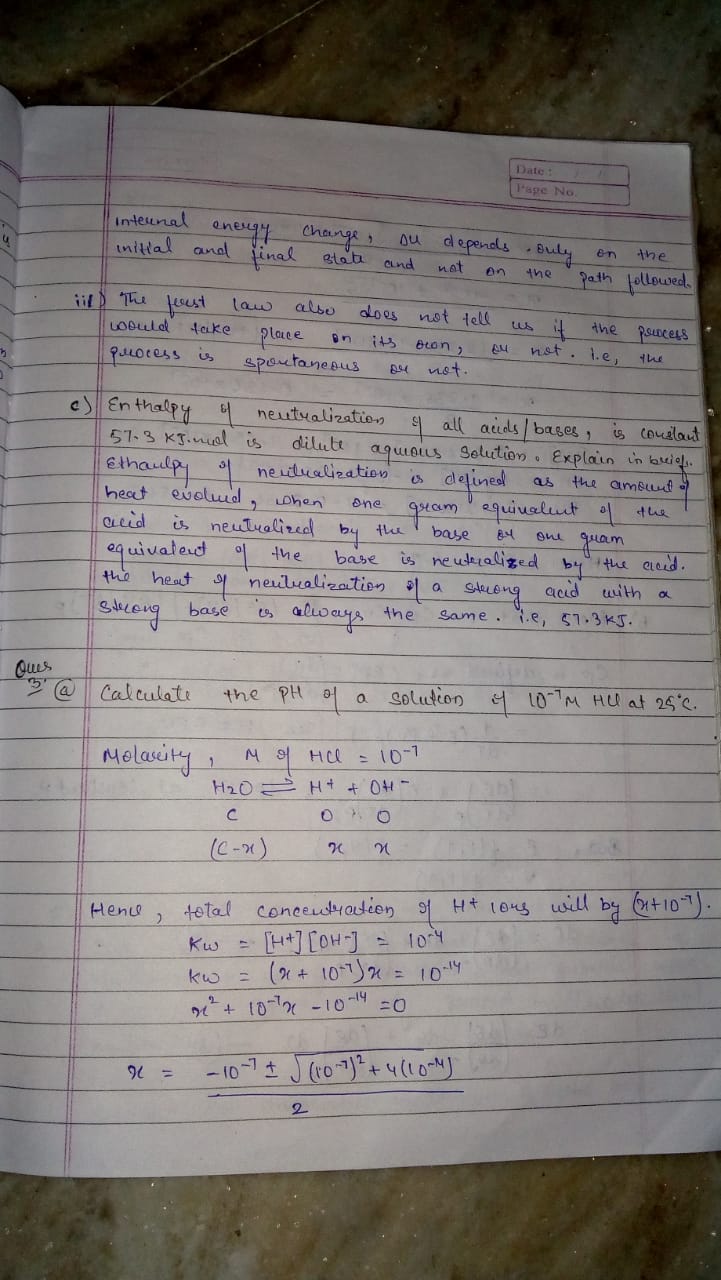 Date :
Page No.
internal energy change, DU depends only on the
initial and final state and not on the path followed.
iii) The first law also does not tell us if the process
would take place on its own, or not. i.e, the
process is spontaneous or not.
c) Enthalpy of neutralization of all acids/bases, is constant
57.3 KJ.mol is dilute aqueous solution. Explain in brief.
Ethaulpy of neutralization is defined as the amount of
heat evolved, when one gram equivalent of the
acid is neutralized by the base or one gram
equivalent of the base is neutralized by the acid.
the heat of neutralization of a strong acid with a
strong base is always the same. i.e, 57.3 KJ.
Ques
3. (a) Calculate the PH of a solution of 10⁻⁷M HCl at 25°C.
Molarity, M of HCl = 10⁻⁷
H2O ⇌ H+ + OH⁻
C 0 0
(C-x) x x
Hence, total concentration of H+ ions will by (x+10⁻⁷).
Kw = [H+][OH-] = 10⁻⁴
Kw = (x + 10⁻⁷)x = 10⁻¹⁴
x² + 10⁻⁷x - 10⁻¹⁴ = 0
x = -10⁻⁷ ± √(10⁻⁷)² + 4(10⁻¹⁴)
2